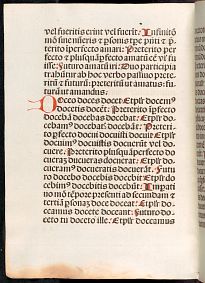 vel fueritis erint vel fuerit. Infinito
mō sine nūeris ⁊ psonis tpe pñti ⁊ p̄
terito īperfecto amari. Preterito per
fecto ⁊ plusquāpfecto amatū eē vl fu
isse. Futuro amatū iri. Duo participia
trahūtur ab hoc verbo passiuo preterito
⁊ futuro: preteritū ut amatus: fu
turū ut amandus.
Doceo doces docet. Etplr docem⁹
docetis docēt. Preterito īpfecto
docebā docebas docebat. Etplr do
cebam⁹ docebatis docebāt. Preterito
pfecto docui docuisti docuit. Etplr
docuim⁹ docuistis docuerūt vel do
cuere. Preterito plusquāperfecto do
cuerā docueras docuerat. Etplr do
cueram⁹ docueratis docuerāt. Futuro
docebo docebis docebit. Etplr do
cebim⁹ docebitis docebūt. Impati
uo mō tēpore presenti ad secundam ⁊
tertiā psonā doce doceat. Etplr do
ceamus docete doceant. Futuro do
ceto tu doceto ille. Etplr doceamus